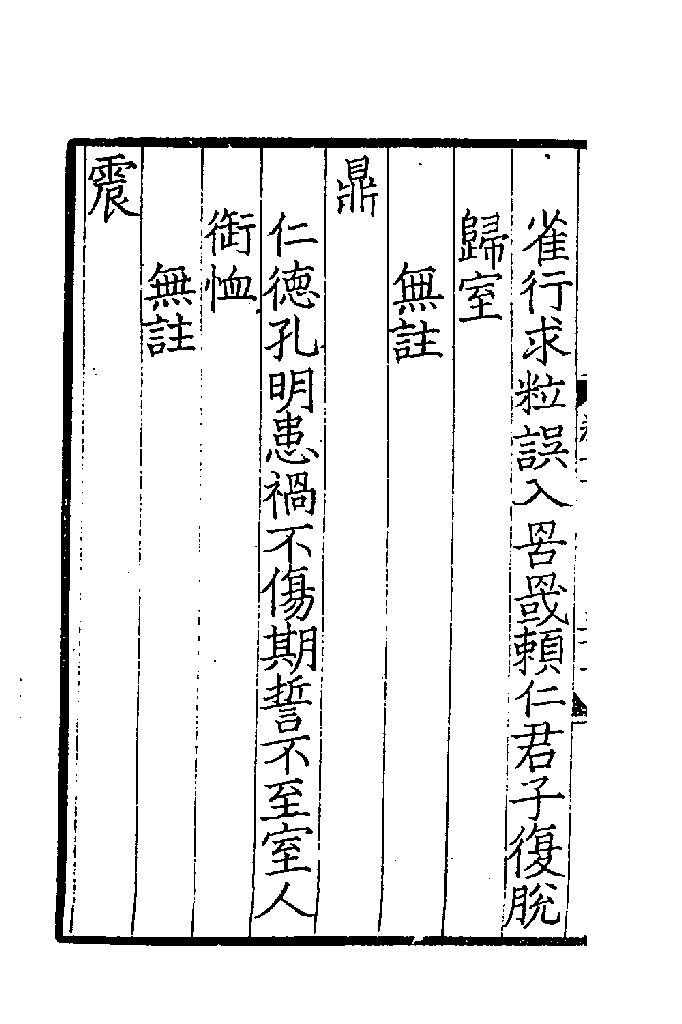 雀行求粒誤入罟罭頼仁君子復脫
歸室
無註
鼎
仁德孔明患禍不傷期誓不至室人
銜恤
無註
震